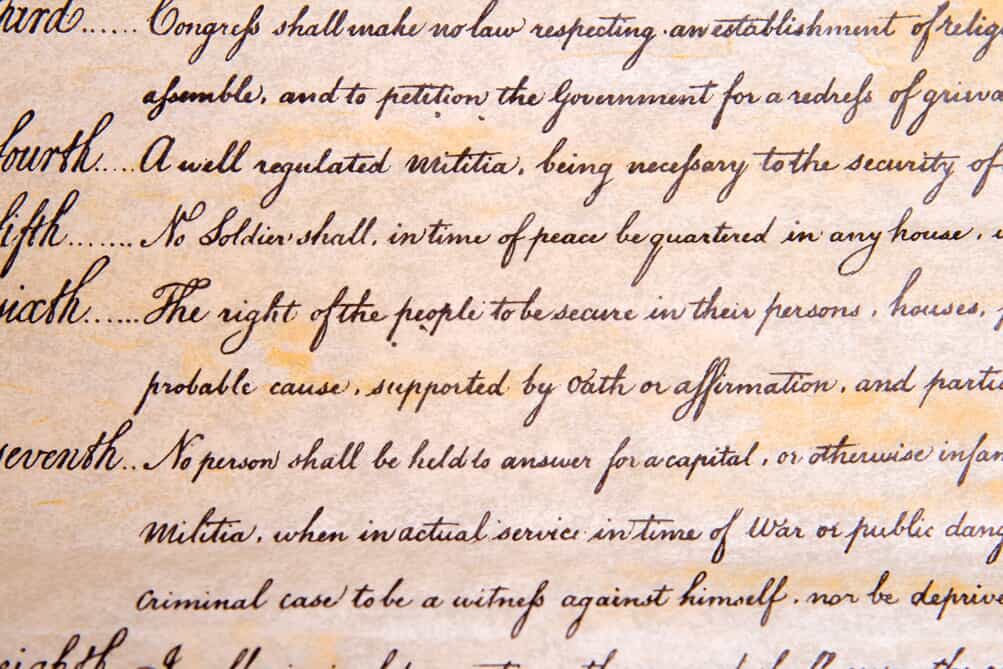 Third...... Congress shall make no law respecting an establishment of relig
assemble, and to petition the Government for a redress of grieva
fourth..... A well regulated Militia, being necessary to the security of
fifth....... No Soldier shall, in time of peace be quartered in any house,
sixth...... The right of the people to be secure in their persons, houses,
probable cause, supported by Oath or affirmation, and partic
seventh.. No person shall be held to answer for a capital, or otherwise infam
Militia, when in actual service in time of War or public dang
criminal case to be a witness against himself, nor be deprive
eighth